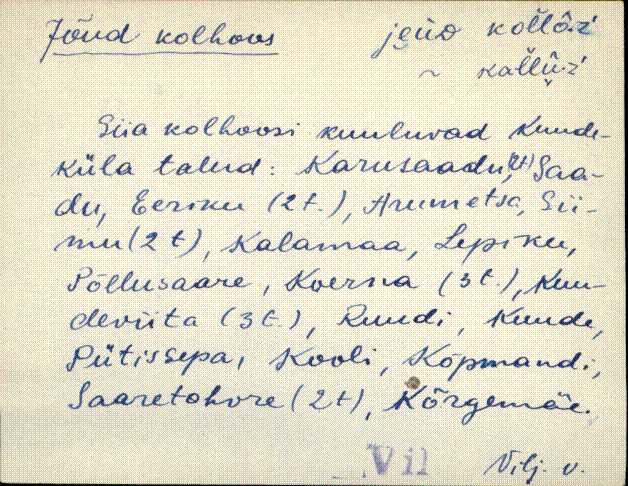 Jõud kolhoos jeüD kollô·z'
~ kallû·z'
Siia kolhoosi kuuluvad Kunde-
küla talud: Karusaadu,(2t) Saa-
du, Eeriku (2t.), Arumetsa, Sii-
mu (2 t), Kalamaa, Lepiku,
Põllusaare, Koerna (3t.), Kun-
deviita (3t.), Rundi, Kunde,
Pütissepa, Kooli, Kõpmandi,
Saaretohvre (2t), Kõrgemäe.
Vil Vilj. v.